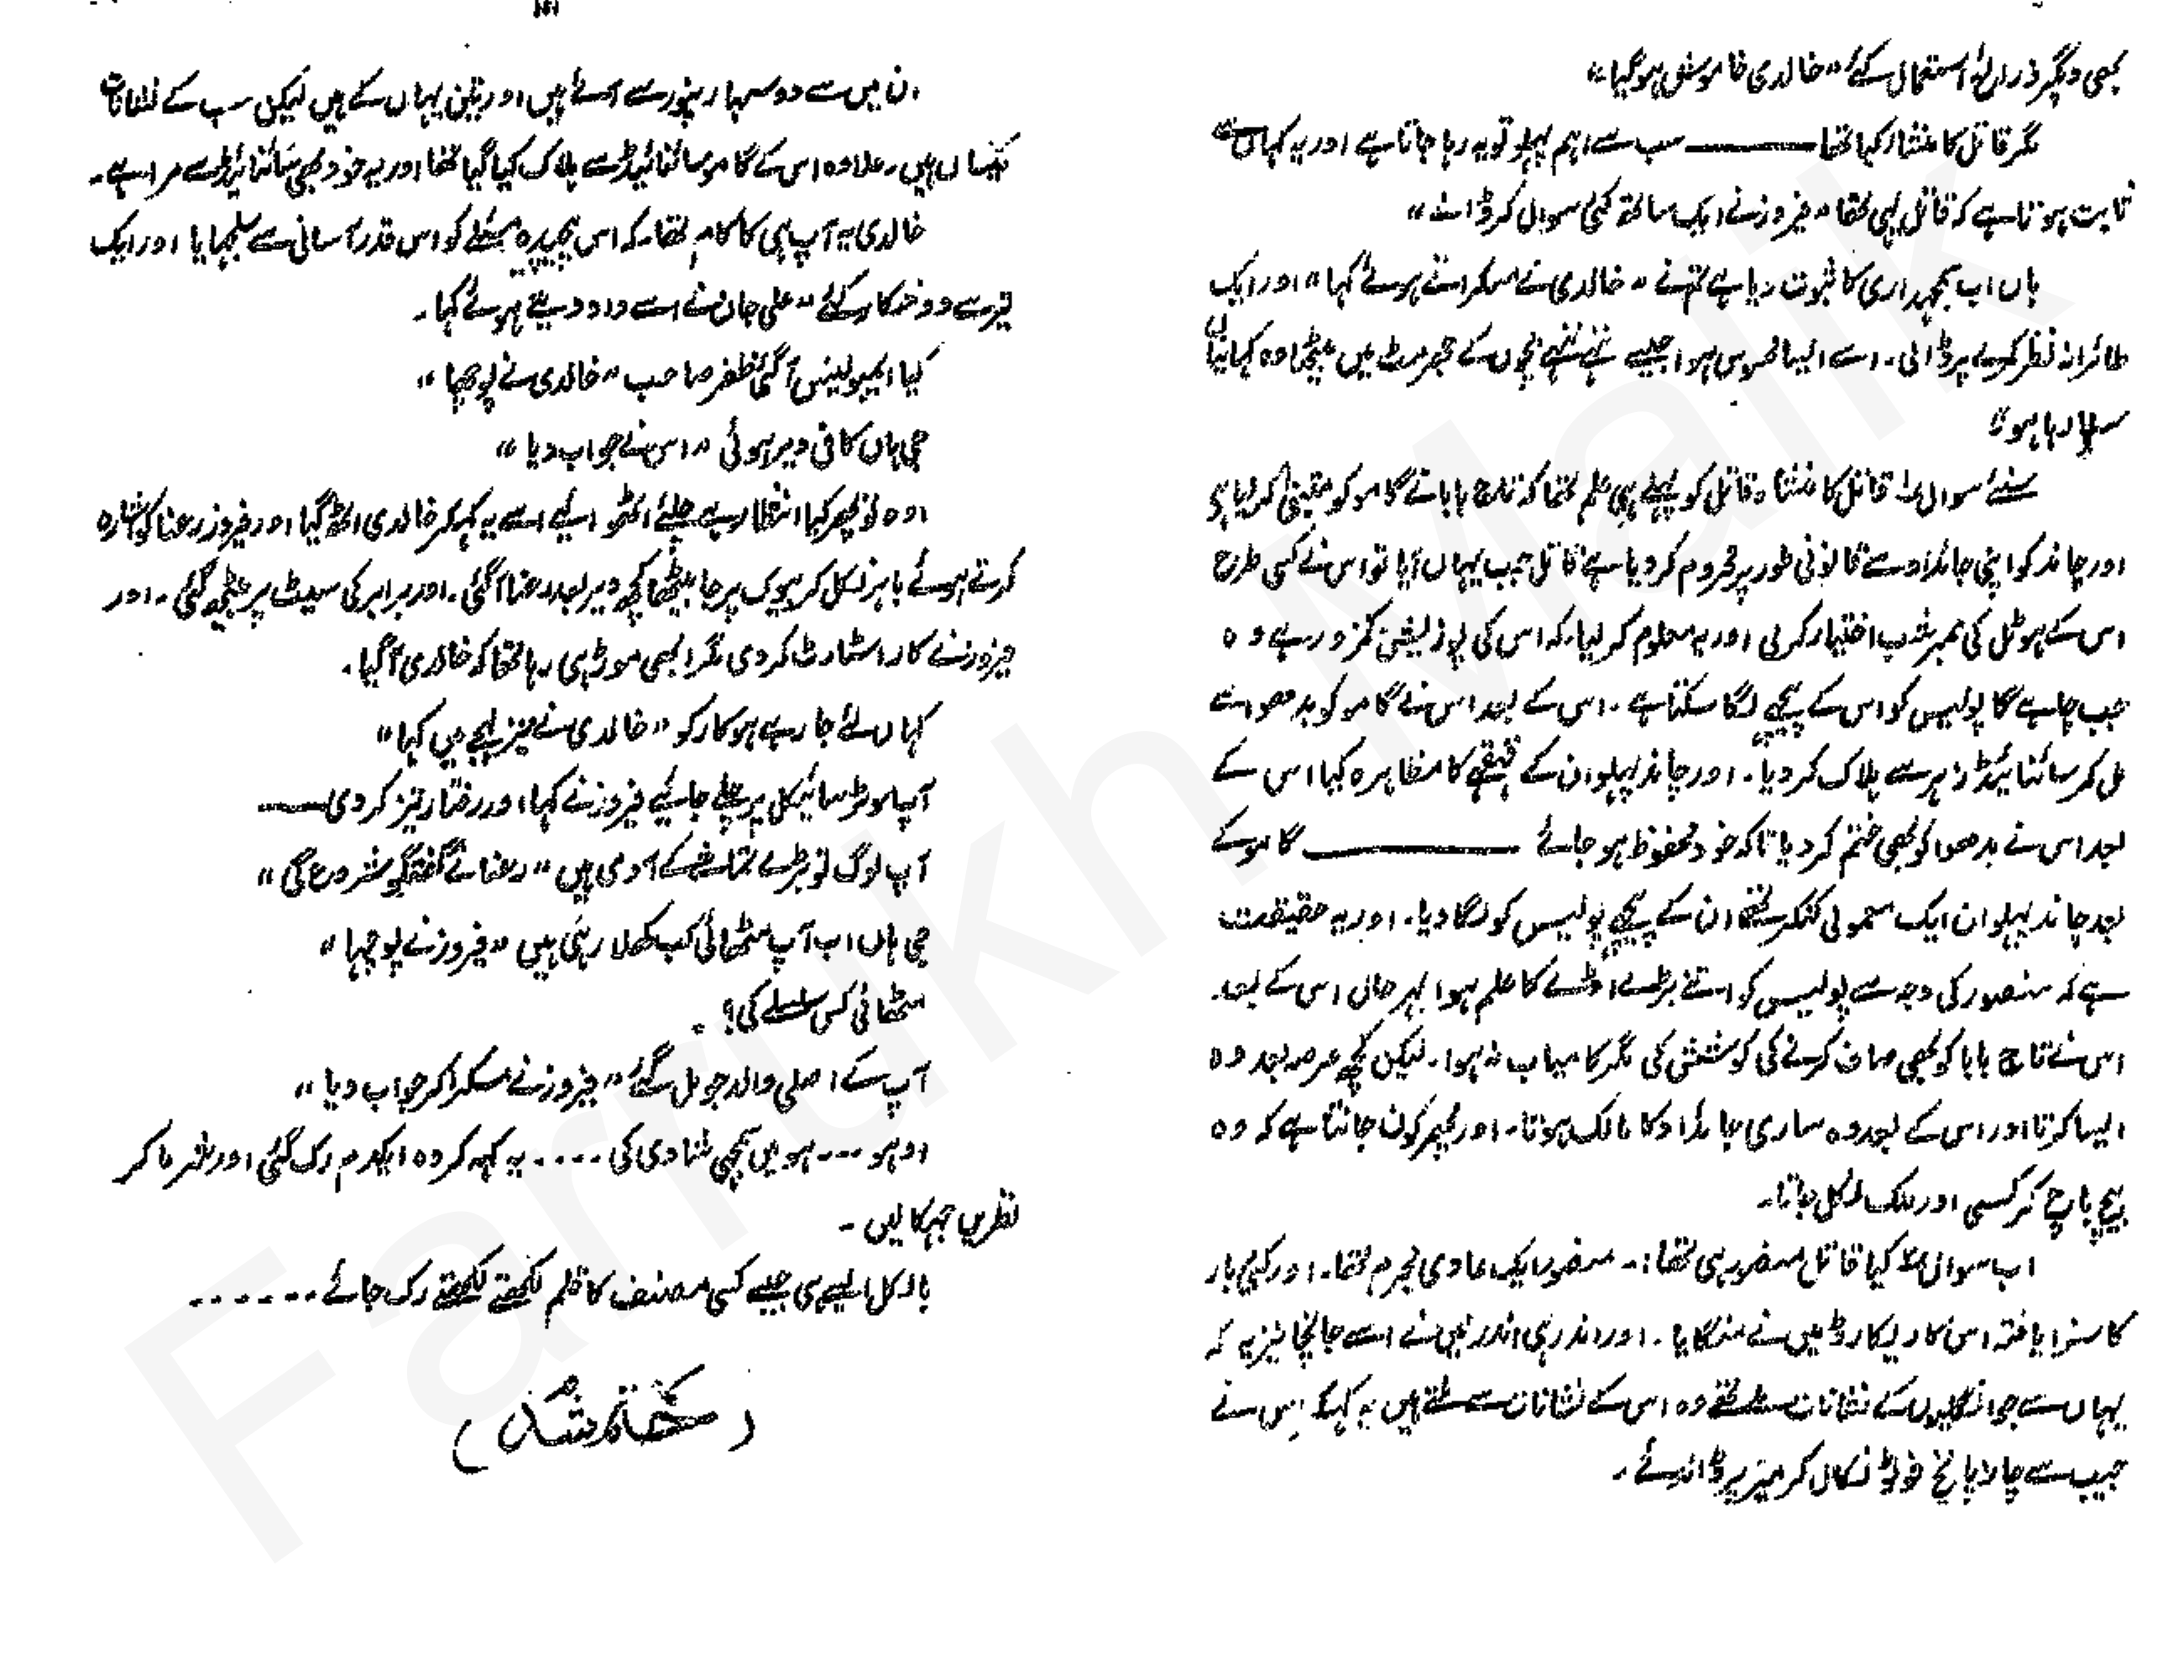 بھی دیگر ذرائع استعمال کئے" خالدی خاموش ہوگیا"
مگر قاتل کا منشار کیا تھا ——— سب سے اہم پہلو تو یہ رہا جاتا ہے اور یہ کہاں سے
ثابت ہوتا ہے کہ قاتل یہی تھا" فیروز نے ایک ساتھ کئی سوال کر ڈالے"
ہاں اب سمجھداری کا ثبوت دیا ہے تم نے" خالدی نے مسکراتے ہوئے کہا" اور ایک
طائرانہ نظر کمرے پر ڈالی۔ اسے ایسا محسوس ہوا جیسے ننھے ننھے بچوں کے جھرمٹ میں بیٹھا وہ کہانیاں
سنا رہا ہو"
سنئے سوال ۱ قاتل کا منشا، قاتل کو پہلے ہی علم تھا کہ تاج بابا نے گامو کو متبنیٰ کر لیا ہے
اور چاند کو اپنی جائداد سے قانونی طور پر محروم کر دیا ہے قاتل جب یہاں آیا تو اس نے کسی طرح
اس کے ہوٹل کی ممبر شپ اختیار کر لی اور یہ معلوم کر لیا، کہ اس کی پوزیشن کمزور ہے وہ
جب چاہے گا پولیس کو اس کے پیچھے لگا سکتا ہے۔ اس کے بعد اس نے گامو کو بدھو سے
مل کر سائنائیڈ زہر سے ہلاک کر دیا۔ اور چاند پہلوان کے قہقہے کا مظاہرہ کیا اس کے
بعد اس نے بدھو کو بھی ختم کر دیا تاکہ خود محفوظ ہو جائے ——— گامو کے
بعد چاند پہلوان ایک معمولی کنکر تھے ان کے پیچھے پولیس کو لگا دیا۔ اور یہ حقیقت
ہے کہ منصور کی وجہ سے پولیس کو اتنے بڑے اڈے کا علم ہوا بہر حال اس کے بعد
اس نے تاج بابا کو بھی صاف کرنے کی کوشش کی مگر کامیاب نہ ہوا۔ لیکن کچھ عرصہ بعد وہ
ایسا کرتا اور اس کے بعد وہ ساری جائداد کا مالک ہوتا۔ اور پھر کون جانتا ہے کہ وہ
بیچ باچ کر کسی اور ملک نکل جاتا۔
اب سوال ۲ کیا قاتل منصور ہی تھا:۔ منصور ایک عادی مجرم تھا۔ اور کئی بار
کا سزا یافتہ اس کا ریکارڈ میں نے منگایا۔ اور اندر ہی اندر میں نے اسے جانچا نیز یہ کہ
یہاں سے جو انگلیوں کے نشانات ملے تھے وہ اس کے نشانات سے ملتے ہیں یہ کہکر اس نے
جیب سے چار پانچ فوٹو نکال کر میز پر ڈالدئے۔
ان میں سے دو سہارنپور سے آئے ہیں اور تین یہاں کے ہیں لیکن سب کے نشانات
یکساں ہیں۔ علاوہ اس کے گامو سائنائیڈ سے ہلاک کیا گیا تھا اور یہ خود بھی سائنائیڈ سے مرا ہے۔
خالدی یہ آپ ہی کا کام تھا۔ کہ اس پیچیدہ مسئلے کو اس قدر آسانی سے سلجھایا اور ایک
تیر سے دو شکار کئے" علی جان نے اسے داد دیتے ہوئے کہا۔
کیا ایمبولینس آگئی ظفر صاحب" خالدی نے پوچھا"
جی ہاں کافی دیر ہوئی" اس نے جواب دیا"
اوہ تو پھر کیا انتظار ہے چلئے اٹھوائیے اسے یہ کہہ کر خالدی اٹھ گیا اور فیروز رعنا کو اشارہ
کرتے ہوئے باہر نکل کر بیوک پر جا بیٹھا کچھ دیر بعد رعنا آگئی۔ اور برابر کی سیٹ پر بیٹھ گئی۔ اور
فیروز نے کار اسٹارٹ کر دی مگر ابھی موڑ ہی رہا تھا کہ خالدی آگیا۔
کہاں لئے جا رہے ہو کار کو" خالدی نے تیز لہجے میں کہا"
آپ موٹر سائیکل پر چلے جائیے فیروز نے کہا، اور رفتار تیز کر دی ——
آپ لوگ تو بڑے تماشے کے آدمی ہیں" رعنا نے گفتگو شروع کی"
جی ہاں اب آپ مٹھائی کب کھلا رہی ہیں" فیروز نے پوچھا"
مٹھائی کس سلسلے کی؟۔
آپ کے اصلی والد جو مل گئے" فیروز نے مسکرا کر جواب دیا"
اوہو ۔۔۔ ہو میں سمجھی شادی کی ۔۔۔۔ یہ کہہ کر وہ ایکدم رک گئی اور شرما کر
نظریں جھکا لیں۔
بالکل ایسے ہی جیسے کسی مصنف کا قلم لکھتے لکھتے رک جائے ۔۔۔۔۔۔
(ختم شد)
Farrukh Malik